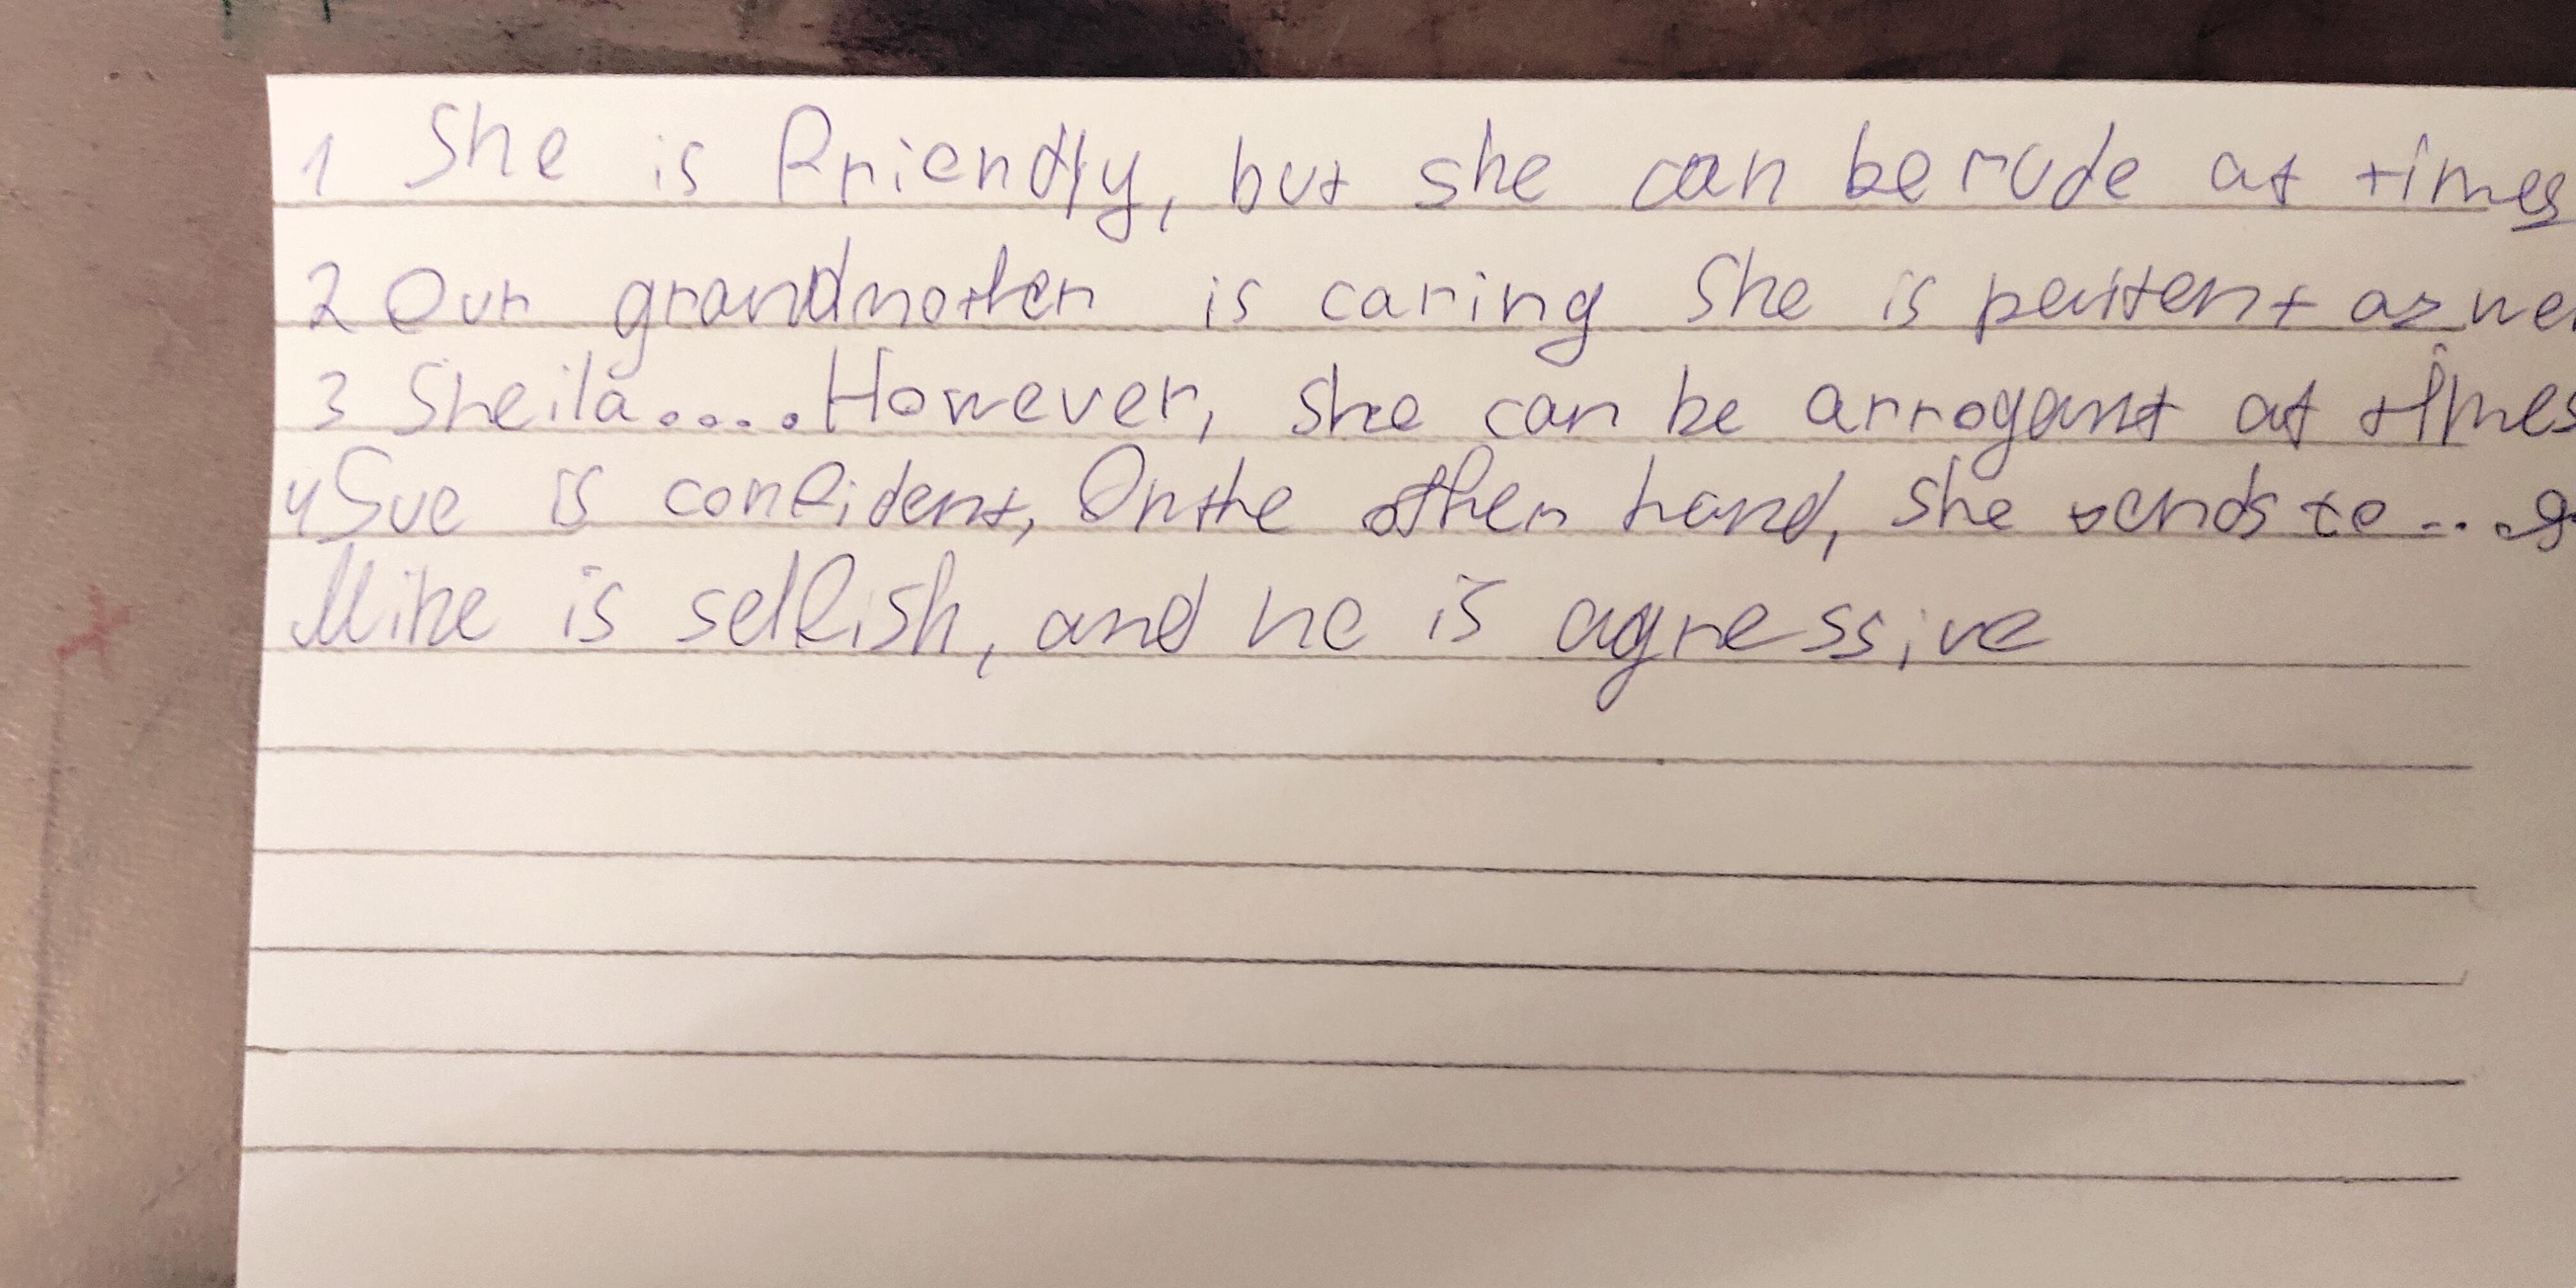 1 She is friendly, but she can be rude at times
2 Our grandmother is caring She is paitent as
3 Sheila..... However, she can be arrogant at times
4 Sue is confident, On the other hand, she tends to...
Mike is selfish, and he is agressive